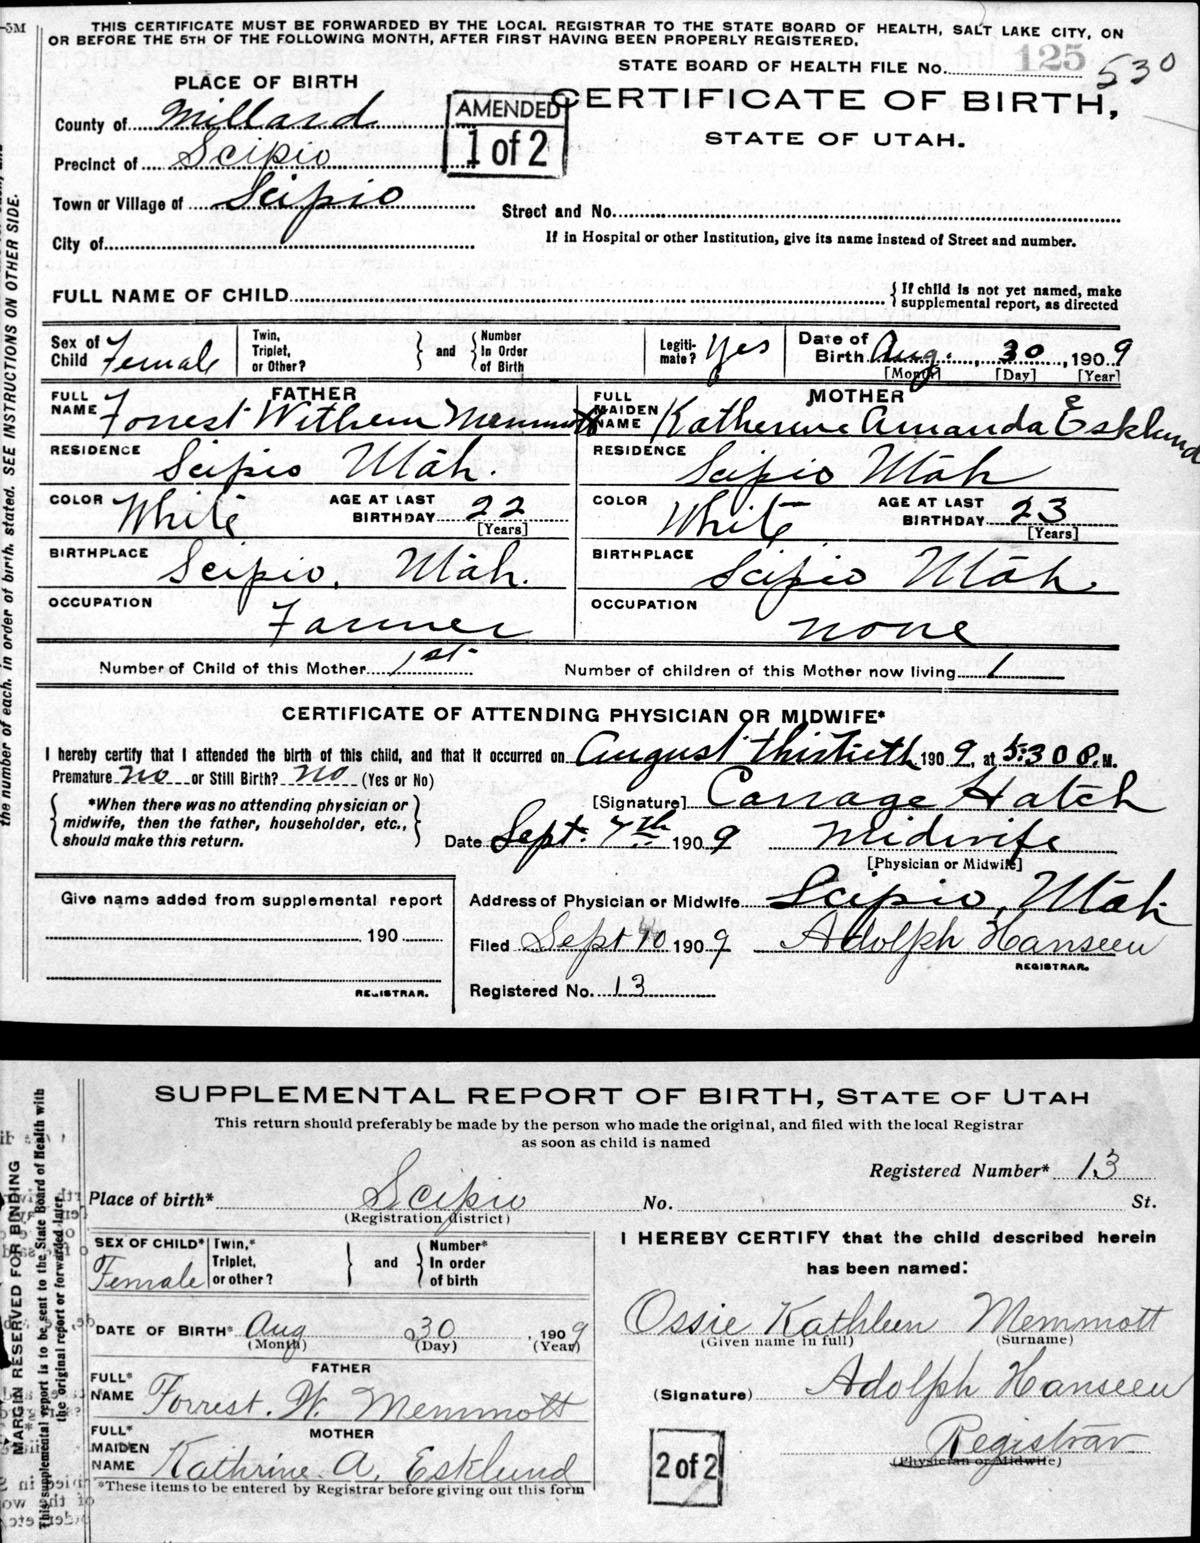 -5M
THIS CERTIFICATE MUST BE FORWARDED BY THE LOCAL REGISTRAR TO THE STATE BOARD OF HEALTH, SALT LAKE CITY, ON
OR BEFORE THE 5TH OF THE FOLLOWING MONTH, AFTER FIRST HAVING BEEN PROPERLY REGISTERED.
STATE BOARD OF HEALTH FILE No. 125 530
PLACE OF BIRTH
AMENDED
1 of 2
CERTIFICATE OF BIRTH,
STATE OF UTAH.
County of Millard
Precinct of Scipio
Town or Village of Scipio
Street and No.
City of
If in Hospital or other Institution, give its name instead of Street and number.
FULL NAME OF CHILD
If child is not yet named, make
supplemental report, as directed
Sex of Child Female
Twin, Triplet, or Other?
and
Number In Order of Birth
Legiti-mate? Yes
Date of Birth Aug. 30, 1909
[Month] [Day] [Year]
FATHER
FULL NAME Forrest Withem Memmott
MOTHER
FULL MAIDEN NAME Katherine Amanda Esklund
RESIDENCE Scipio Utah.
RESIDENCE Scipio Utah
COLOR White AGE AT LAST BIRTHDAY 22 [Years]
COLOR White AGE AT LAST BIRTHDAY 23 [Years]
BIRTHPLACE Scipio, Utah.
BIRTHPLACE Scipio Utah.
OCCUPATION Farmer
OCCUPATION none
Number of Child of this Mother 1st
Number of children of this Mother now living 1
CERTIFICATE OF ATTENDING PHYSICIAN OR MIDWIFE*
I hereby certify that I attended the birth of this child, and that it occurred on August thirtieth 1909, at 5:30 P.M.
Premature no or Still Birth? no (Yes or No)
*When there was no attending physician or
midwife, then the father, householder, etc.,
should make this return.
[Signature] Hatch
Date Sept. 7th 1909 Midwife
[Physician or Midwife]
Give name added from supplemental report
190
REGISTRAR.
Address of Physician or Midwife Scipio, Utah
Filed Sept 10 1909 Adolph Hanseen
REGISTRAR.
Registered No. 13
the number of each, in order of birth, stated. SEE INSTRUCTIONS ON OTHER SIDE.
SUPPLEMENTAL REPORT OF BIRTH, STATE OF UTAH
This return should preferably be made by the person who made the original, and filed with the local Registrar
as soon as child is named
Registered Number* 13
Place of birth* Scipio No. St.
(Registration district)
SEX OF CHILD* Female
Twin,* Triplet, or other?
and
Number* In order of birth
I HEREBY CERTIFY that the child described herein
has been named:
DATE OF BIRTH* Aug 30, 1909
(Month) (Day) (Year)
Ossie Kathleen Memmott
(Given name in full) (Surname)
FATHER
FULL* NAME Forrest. W. Memmott
(Signature) Adolph Hanseen
MOTHER
FULL* MAIDEN NAME Kathrine A. Esklund
Registrar
(Physician or Midwife)
2 of 2
*These items to be entered by Registrar before giving out this form
MARGIN RESERVED FOR BINDING
This supplemental report is to be sent to the State Board of Health with
the original report or forwarded later